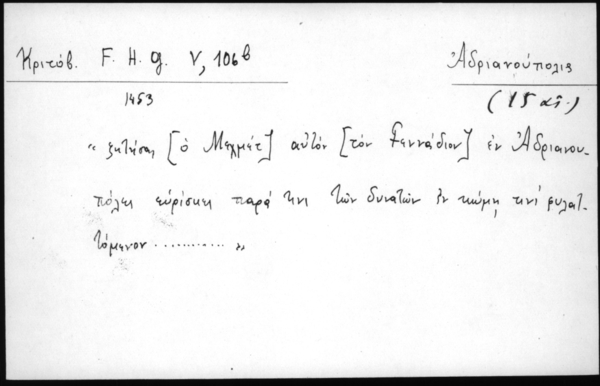 Κριτόβ. F. H. g. V, 106b
Ἀδριανούπολις
1453
(15 αἰ.)
« ζητήσας [ὁ Μεχμέτ] αὐτόν [τόν Γεννάδιον] ἐν Ἀδριανου-
πόλει εὑρίσκει παρά τινι τῶν δυνατῶν ἐν κώμῃ τινί φυλατ-
τόμενον ............ »